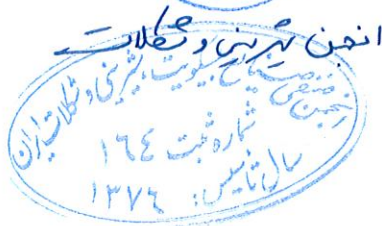 انجمن شیرینی و شکلات
انجمن صنفی صنایع بیسکویت، شیرینی و شکلات ایران
شماره ثبت ۱۶۴
سال تاسیس: ۱۳۷۶